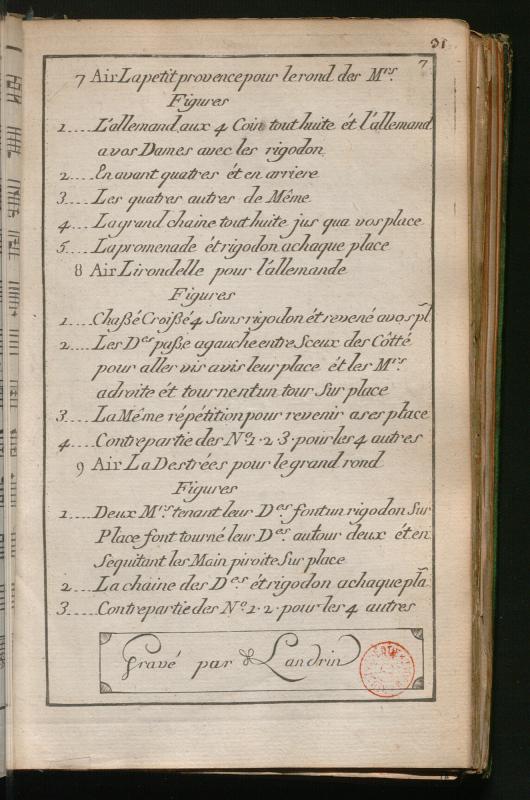 31
7
7 Air La petit provence pour le rond des Mrs.
Figures
1.... L'allemand aux 4 Coin tout huite ét l'allemand
a vos Dames avec les rigodon
2.... En avant quatres ét en arriere
3.... Les quatres autres de Même
4.... La grand chaine tout huite jus qua vos place
5.... La promenade ét rigodon a chaque place
8 Air Lirondelle pour l'allemande
Figures
1.... Chaßé Croißé 4 Sans rigodon ét revené a vos pl.
2.... Les Des paße a gauche entre Sceux des Côtté
pour aller vis avis leur place ét les Mrs.
a droite ét tournent un tour Sur place
3.... La Même répétition pour revenir a ser place
4.... Contrepartie des No. 1. 2. 3. pour les 4 autres
9 Air La Destrées pour le grand rond
Figures
1.... Deux Mrs. tenant leur Des. font un rigodon Sur
Place font tourné leur Des. autour deux ét en
Sequitant les Main piroite Sur place
2.... La chaine des Des ét rigodon a chaque pla
3.... Contrepartie des No. 1. 2. pour les 4 autres
Gravé par Landrin